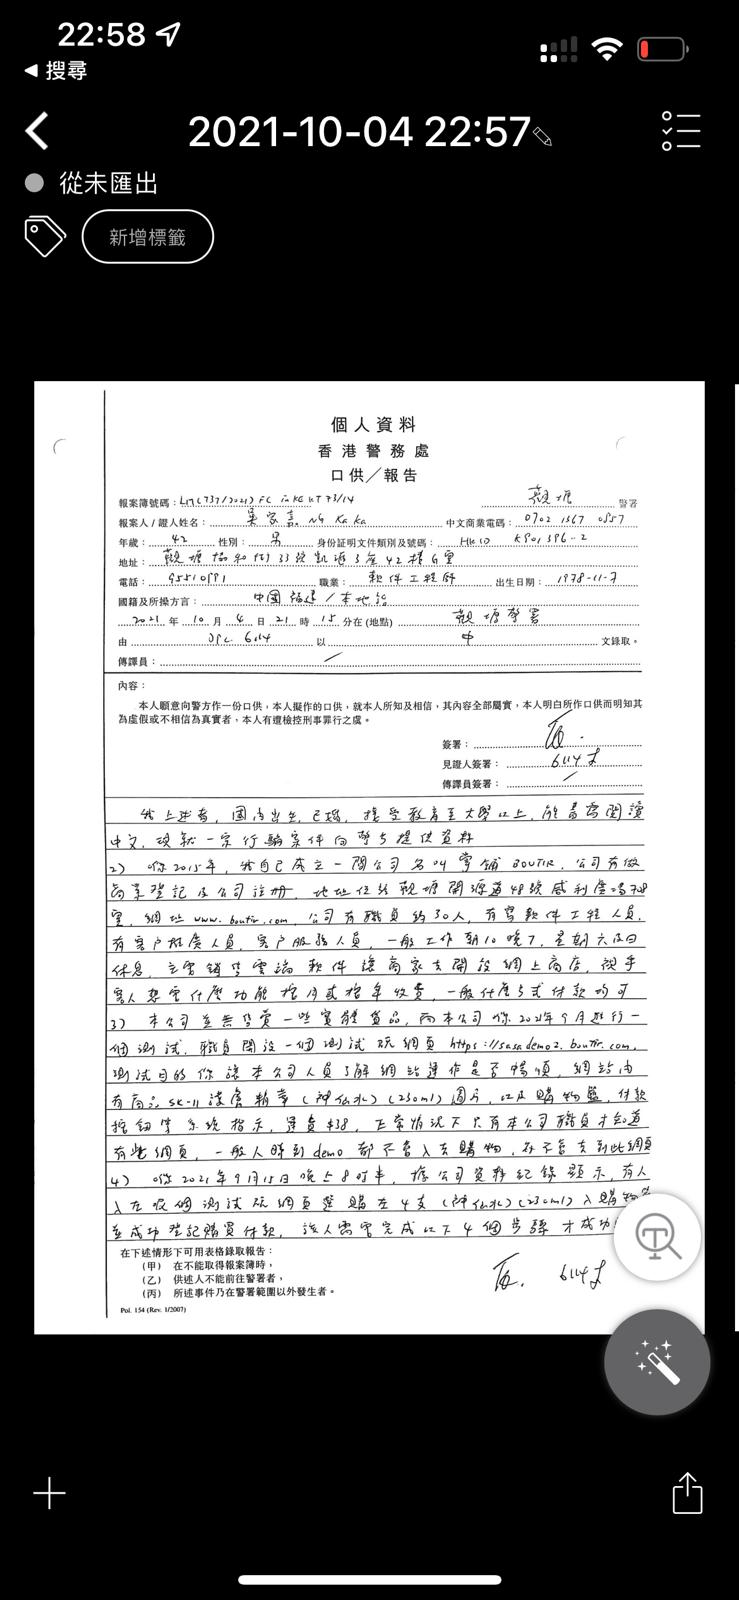 22:58
搜尋
2021-10-04 22:57
從未匯出
新增標籤
個人資料
香港警務處
口供／報告
報案簿號碼：
觀塘 警署
報案人／證人姓名： NG Ka Ka 中文商業電碼： 0702 1367 0857
年歲： 42 性別： 男 身份証明文件類別及號碼： HKID
地址： 觀塘
電話： 職業： 軟件工程師 出生日期： 1978-11-7
國籍及所操方言： 中國福建／本地話
2021 年 10 月 4 日 21 時 15 分在 (地點) 觀塘警署
由 DPC 6114 以 中 文錄取。
傳譯員：
內容：
本人願意向警方作一份口供，本人擬作的口供，就本人所知及相信，其內容全部屬實，本人明白所作口供而明知其
為虛假或不相信為真實者，本人有遭檢控刑事罪行之虞。
簽署：
見證人簽署： 6114
傳譯員簽署：
我上述者，國內出生，已婚，接受教育至大學以上，能書寫閱讀
中文，現就一宗行騙案件向警方提供資料
2) 於2015年，我自己成立一間公司名叫掌舖 BOUTIR，公司有做
商業登記及公司註冊，地址位於觀塘開源道48號威利廣場708
室，網址 www.boutir.com，公司有職員約30人，有寫軟件工程人員，
有客戶推廣人員，客戶服務人員，一般工作朝10晚7，星期六及日
休息，主要銷售雲端軟件讓商家去開設網上商店，視乎
客人想要什麼功能按月或按年收費，一般什麼方式付款均可
3) 本公司並無售賣一些實體貨品，而本公司於2021年9月進行一
個測試，職員開設一個測試版網頁 https://sasademo2.boutir.com，
測試目的係讓本公司人員了解網站運作是否暢順，網站內
有商品SK-II護膚精華（神仙水）（230ml）圖片，以及購物籃，付款
按鈕等系統指示，運費$38，正常情況下只有本公司職員才知道
有些網頁，一般人睇到demo都不會入去購物，亦不會去到此網頁
4) 於2021年9月15日晚上8時半，據公司資料紀錄顯示，有人
入在呢個測試版網頁選購左4支（神仙水）（230ml）入購物
並成功登記購買付款，該人需要完成以下4個步驟才成功
在下述情形下可用表格錄取報告：
（甲） 在不能取得報案簿時，
（乙） 供述人不能前往警署者，
（丙） 所述事件乃在警署範圍以外發生者。
6114
Pol. 154 (Rev. 1/2007)